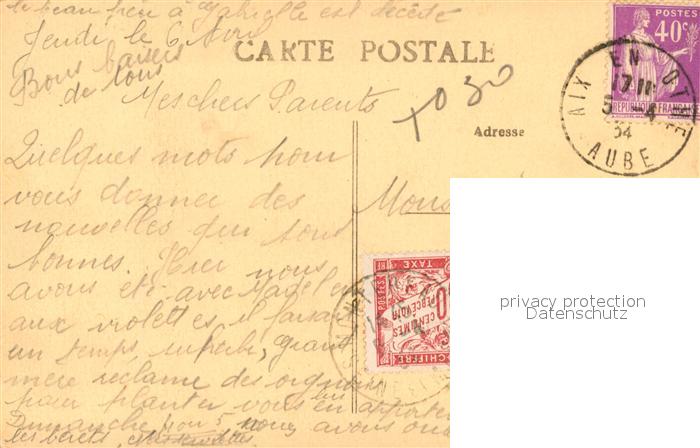 le beau père à Gabrielle est décédé
Jeudi le 6 Avril
Bons baisers
de tous
CARTE POSTALE
Mes chers Parents
+0 30
Adresse
POSTES
40c
RÉPUBLIQUE FRANÇAISE
AIX EN OTHE
17 H
5 - 4
34
AUBE
Quelques mots pour
vous donner des
nouvelles qui sont
bonnes. Hier nous
avons été avec
aux violettes il faisait
un temps superbe, grand
mère réclame des oignons
pour planter vous en apporter
Dimanche 4 ou 5 nous avons ou
les berets,
Mons
TAXE
POSTES
CENTIMES
A PERCEVOIR
CHIFFRE
privacy protection
Datenschutz